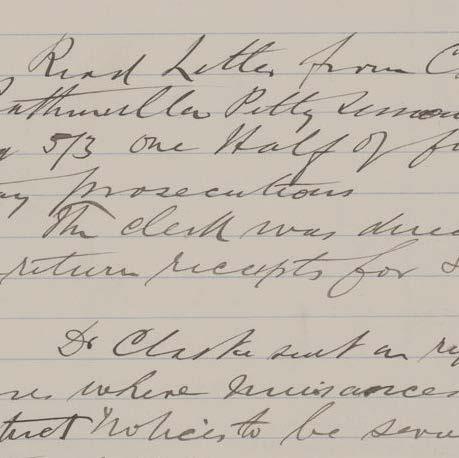 Read Letter from C
Rathmullen Petty Sessions
g 5/3 one Half of fi
ay prosecutions
The clerk was direc
return receipts for
Dr Clarke sent on rep
where nuisances
Notices to be serv